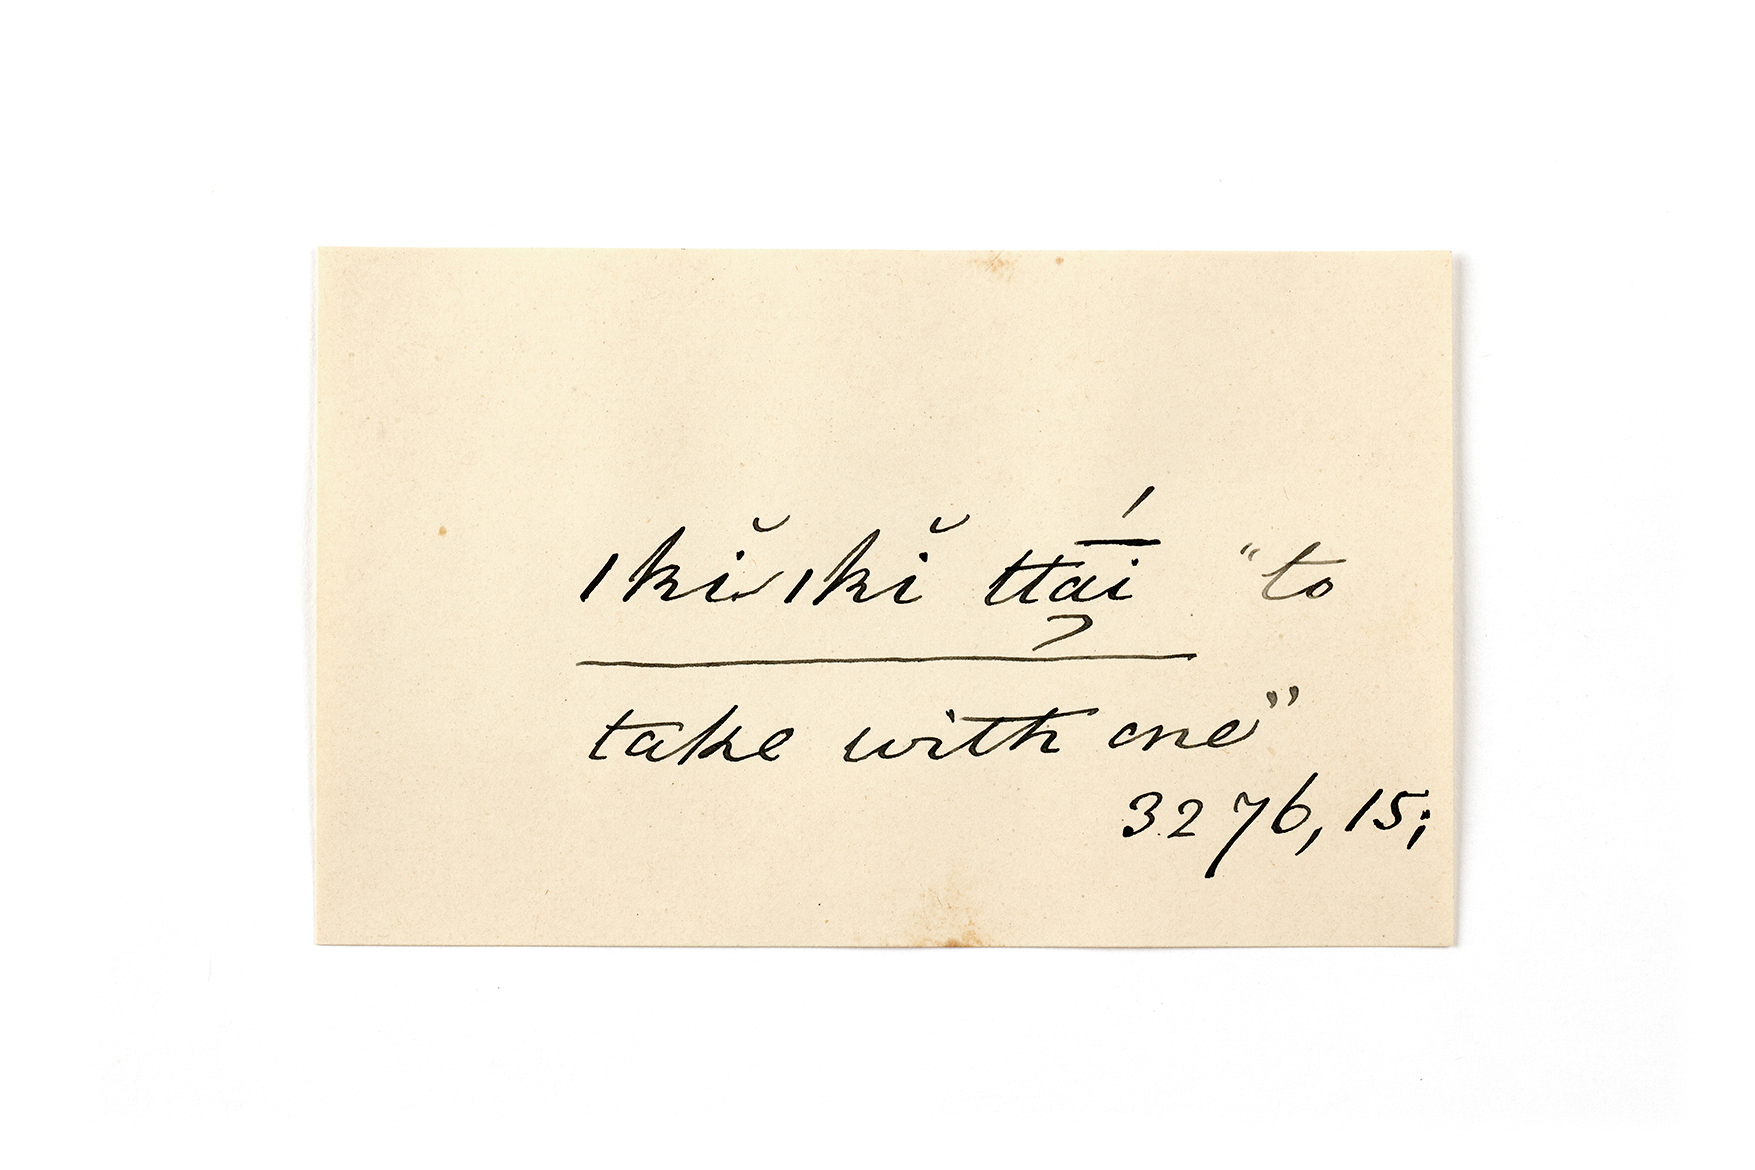 ıkĭıkĭ ttāí "to
take with one"
3276, 15;